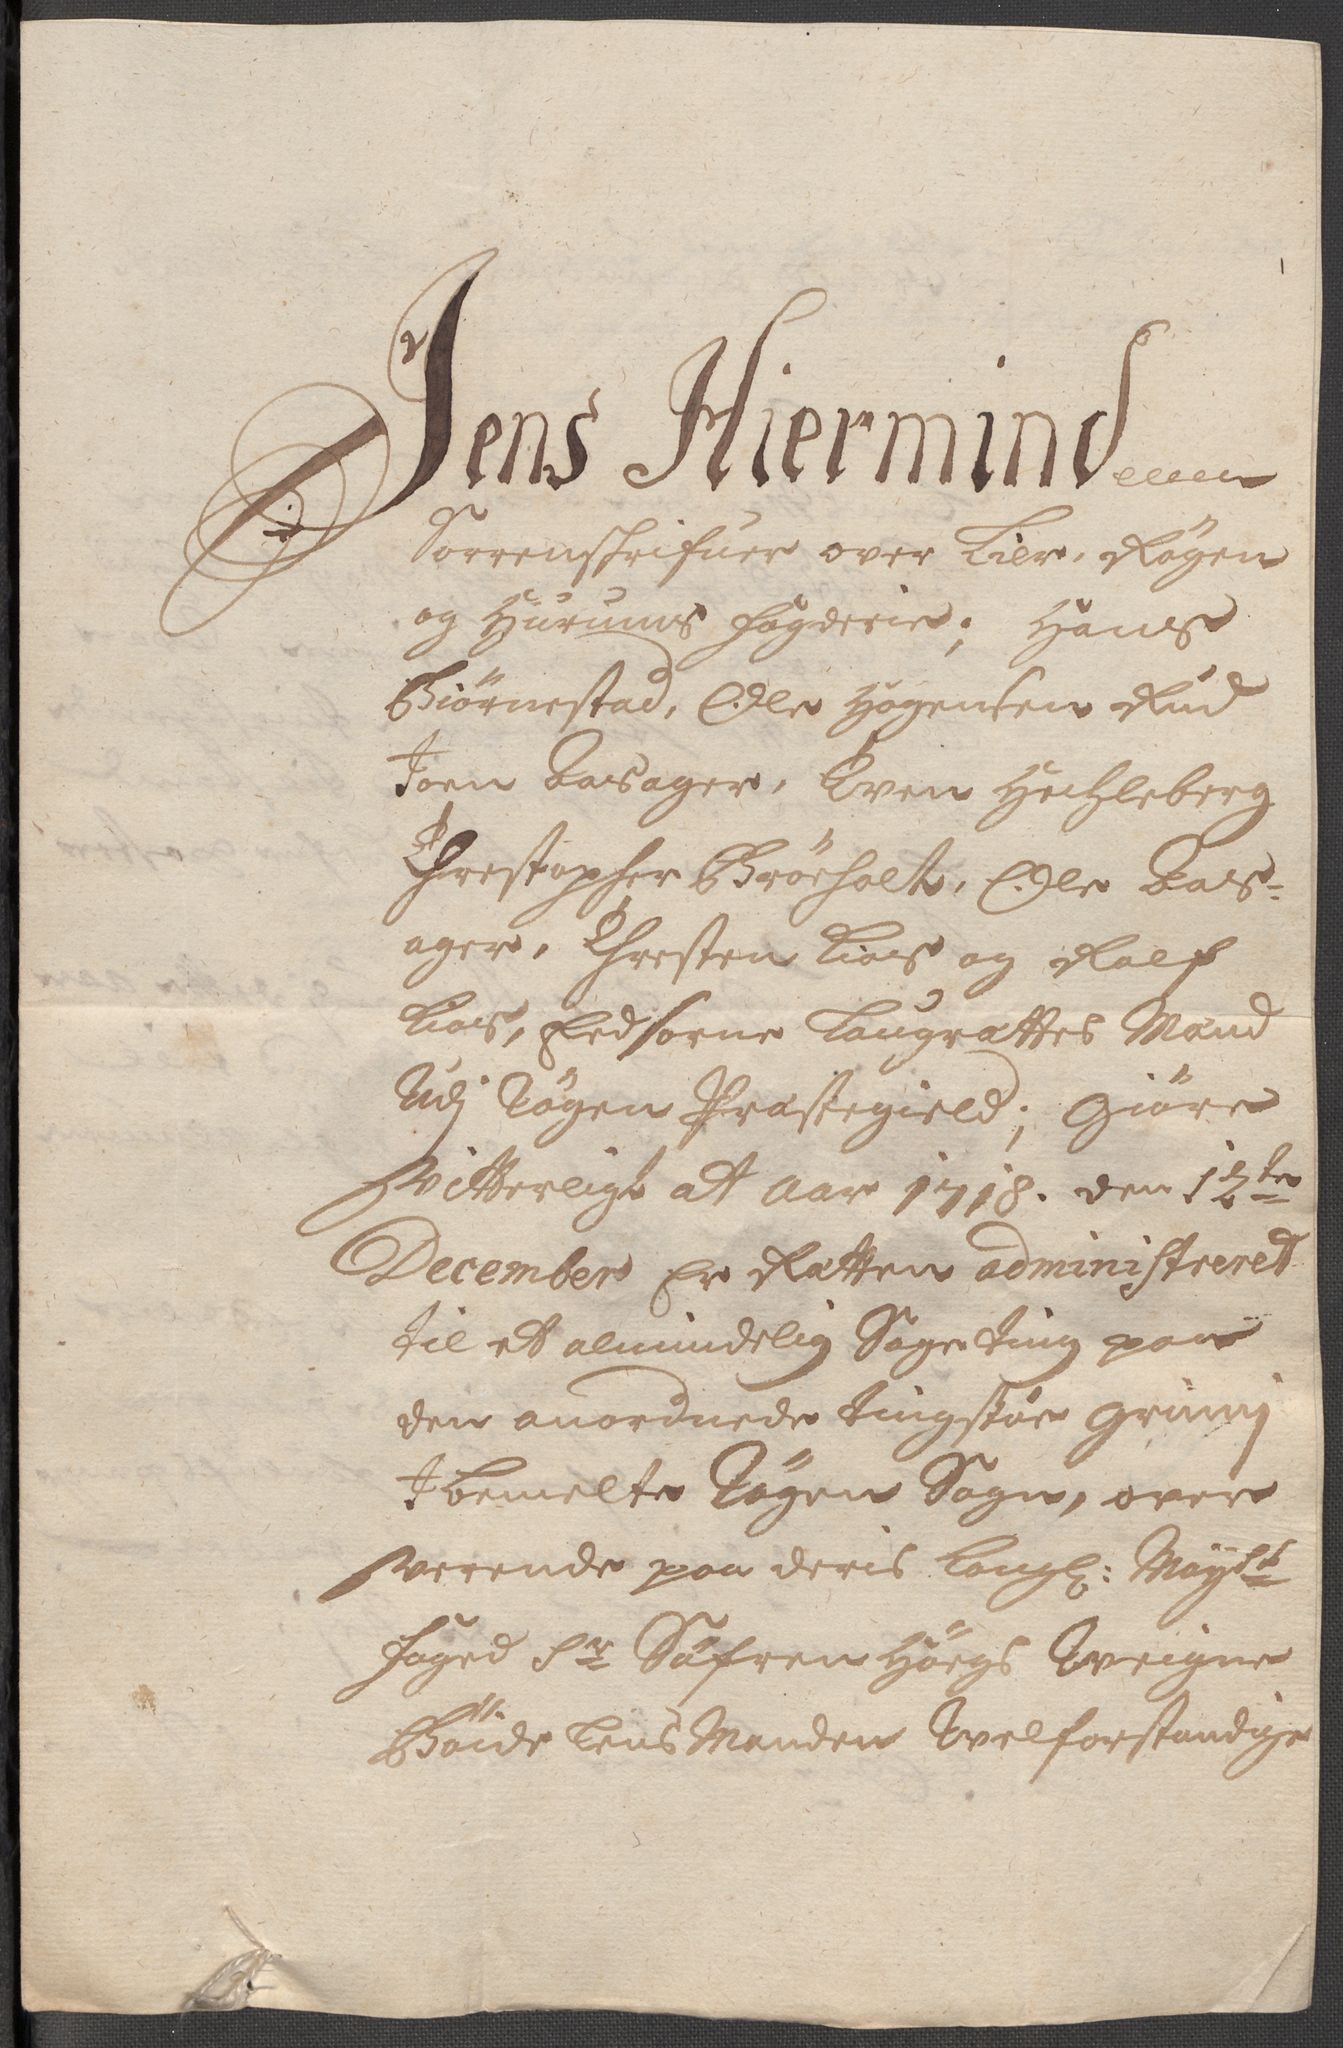 Jens Hiermind
Sorrenskrifuer over Lier, Røgen
og Hurums fogderie; Hans
Biörnestad, Ole Hogensen Rud
Joen Aasager, Even Heckleberg
Christopher Bröeholt, Ole Aas-
ager, Christen Lias og Rolf
Lias, Eedsorne Laugrettes Mænd
Udj Røgen Præstegield; Giöre
vitterligt att Aar 1718. den 12te
December Er Retten administreret
til et almindelig Sage ting paa
den anordnede tingstue Grimj
I bemelte Røgen Sogn, over
verende paa deris Kongl: Mayts
foged Sr Söfren Höegs Vegne
Böide LensManden Velforstandige